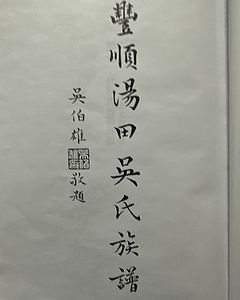 豐順湯田吳氏族譜
吳伯雄敬題